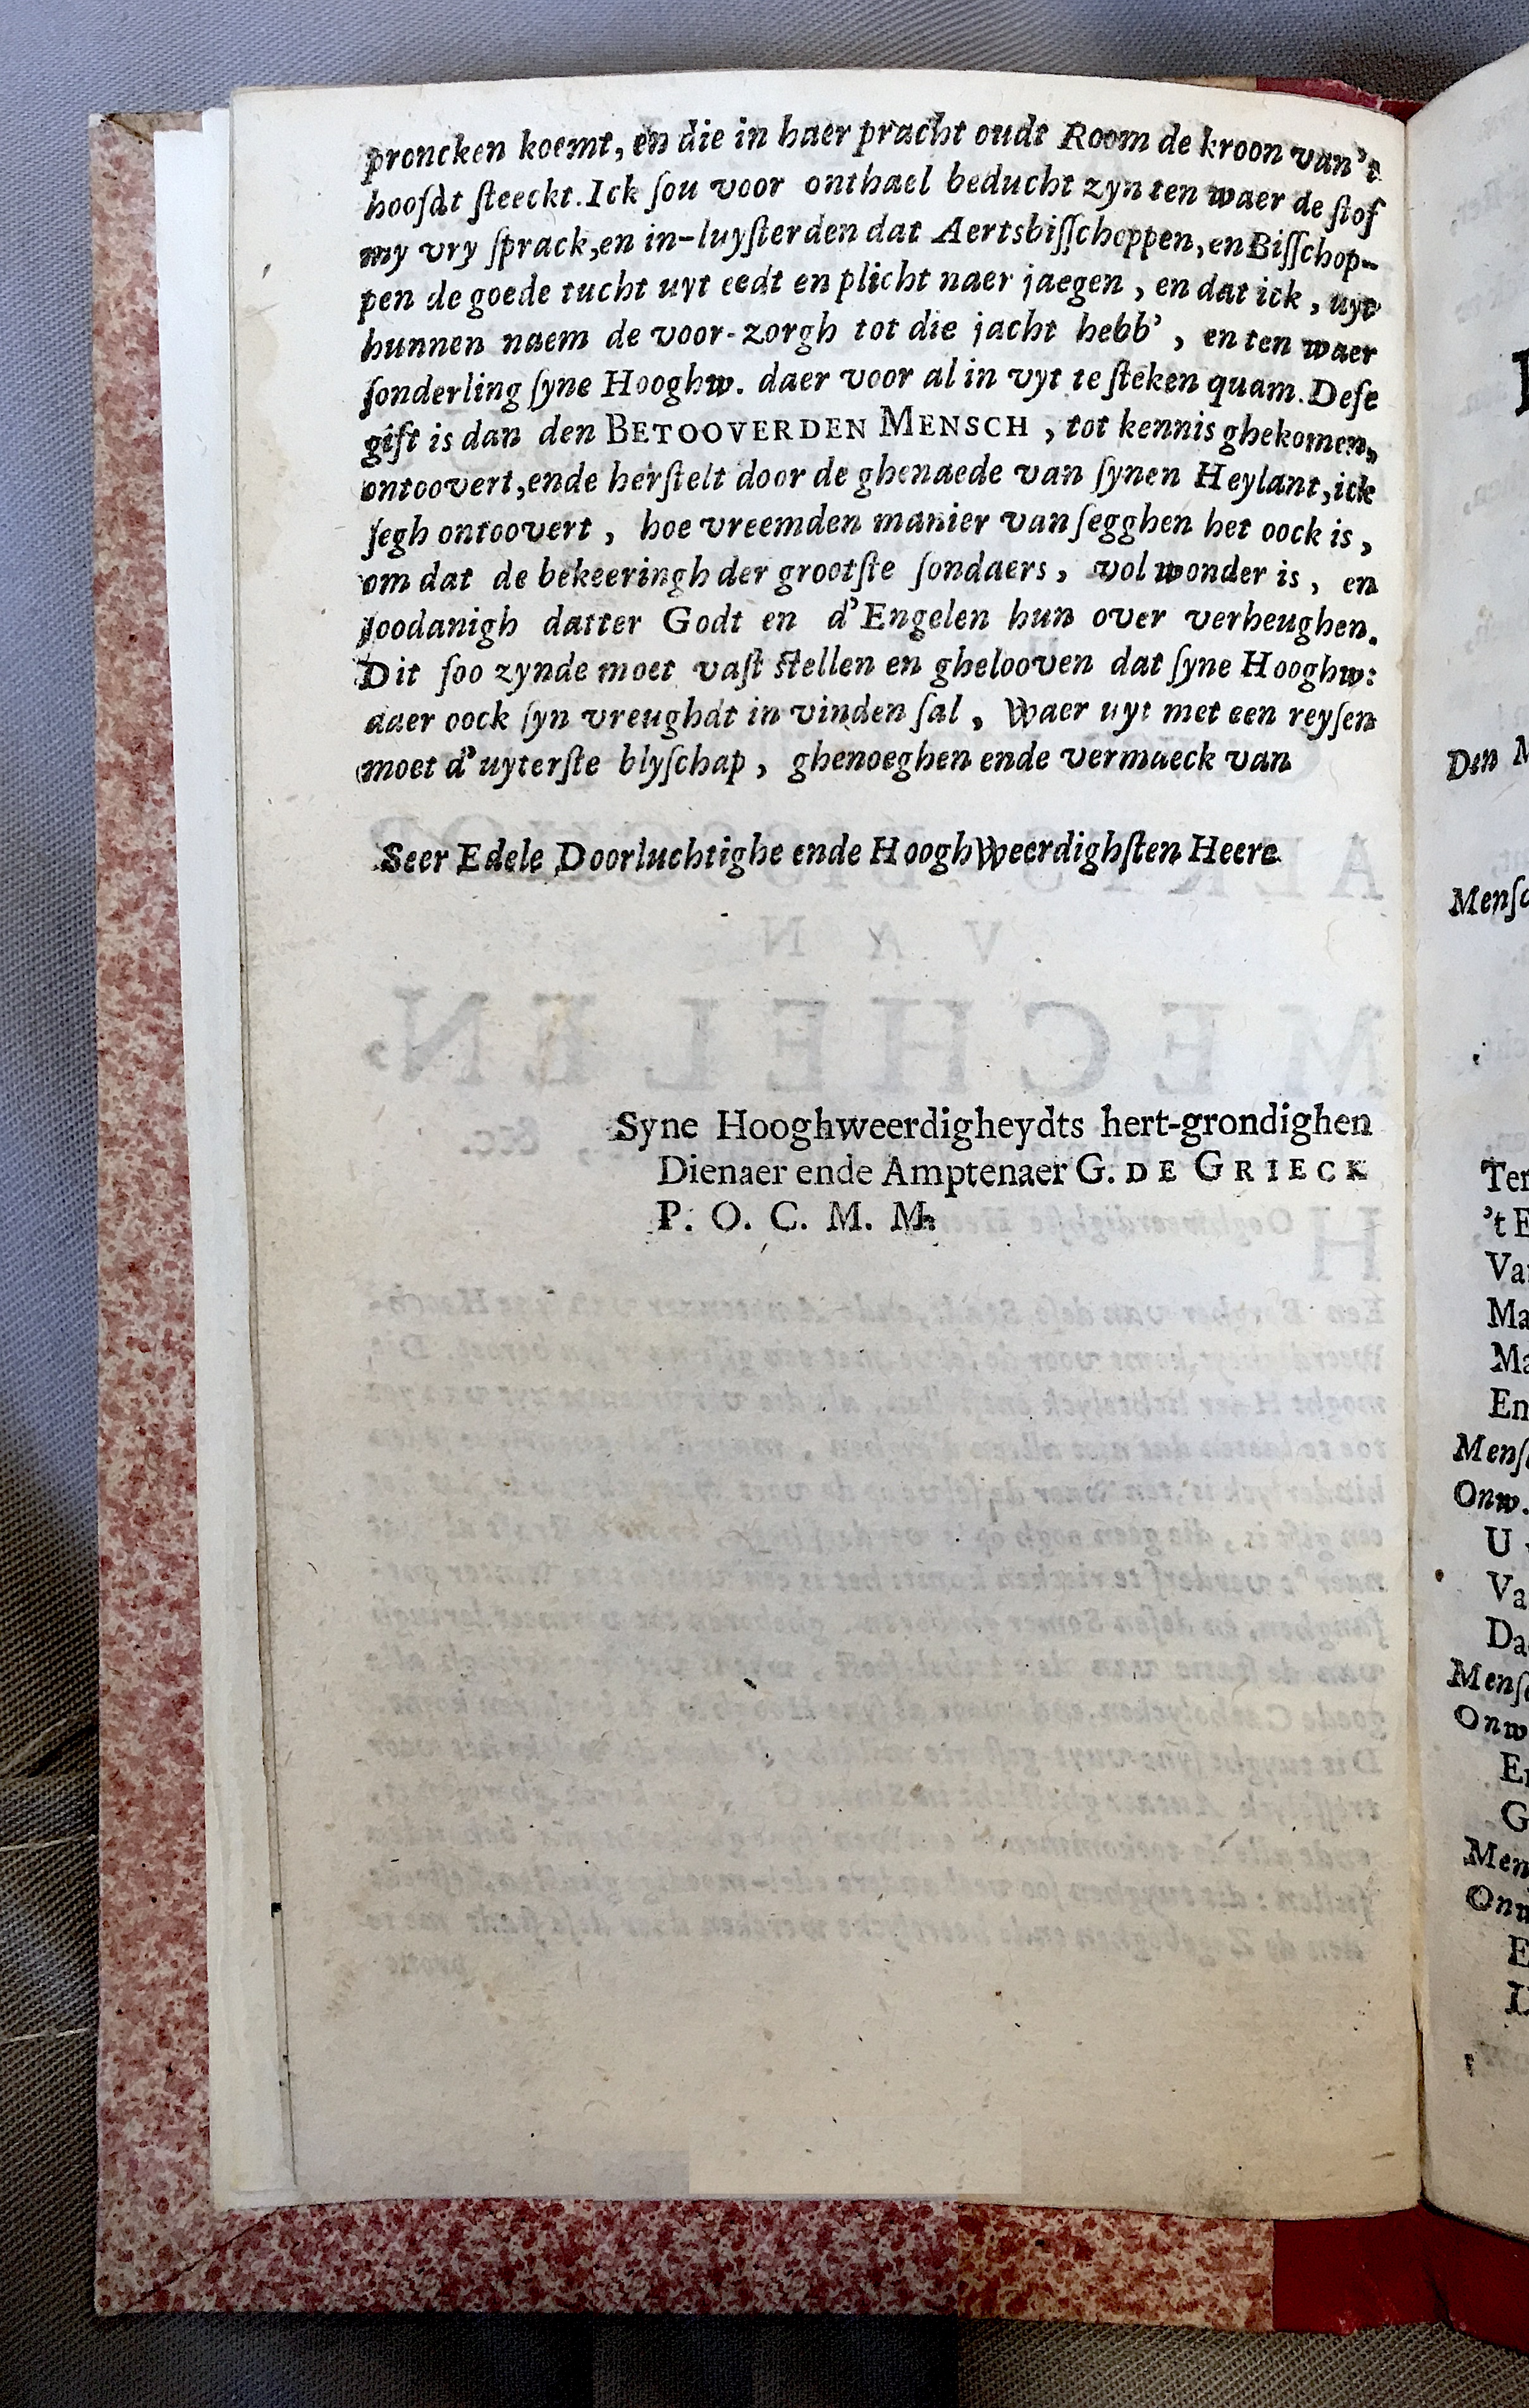 proncken koemt, en die in haer pracht oudt Room de kroon van't
hoofdt ſteeckt. Ick ſou voor onthael beducht zyn ten waer de ſtof
my vry ſprack, en in-luyſterden dat Aertsbiſſchoppen, en Biſſchop-
pen de goede tucht uyt eedt en plicht naer jaegen, en dat ick, uyt
hunnen naem de voor-zorgh tot die jacht hebb', en ten waer
ſonderling ſyne Hooghw. daer voor al in vyt te ſteken quam. Deſe
gift is dan den BETOOVERDEN MENSCH, tot kennis ghekomen,
ontoovert, ende herſtelt door de ghenaede van ſynen Heylant, ick
ſegh ontoovert, hoe vreemden manier van ſegghen het oock is,
om dat de bekeeringh der grootſte ſondaers, vol wonder is, en
ſoodanigh datter Godt en d'Engelen hun over verheughen.
Dit ſoo zynde moet vaſt ſtellen en ghelooven dat ſyne Hooghw:
daer oock ſyn vreughdt in vinden ſal, Waer uyt met een reyſen
moet d'uyterſte blyſchap, ghenoeghen ende vermaeck van
Seer Edele Doorluchtighe ende HooghWeerdighſten Heere
Syne Hooghweerdigheydts hert-grondighen
Dienaer ende Amptenaer G. DE GRIECK
P. O. C. M. M.
Den
Menſ
Ter
't
Va
Ma
Ma
En
Menſ
Onw.
U
Va
Da
Menſ
Onw
E
G
Men
Onw
E